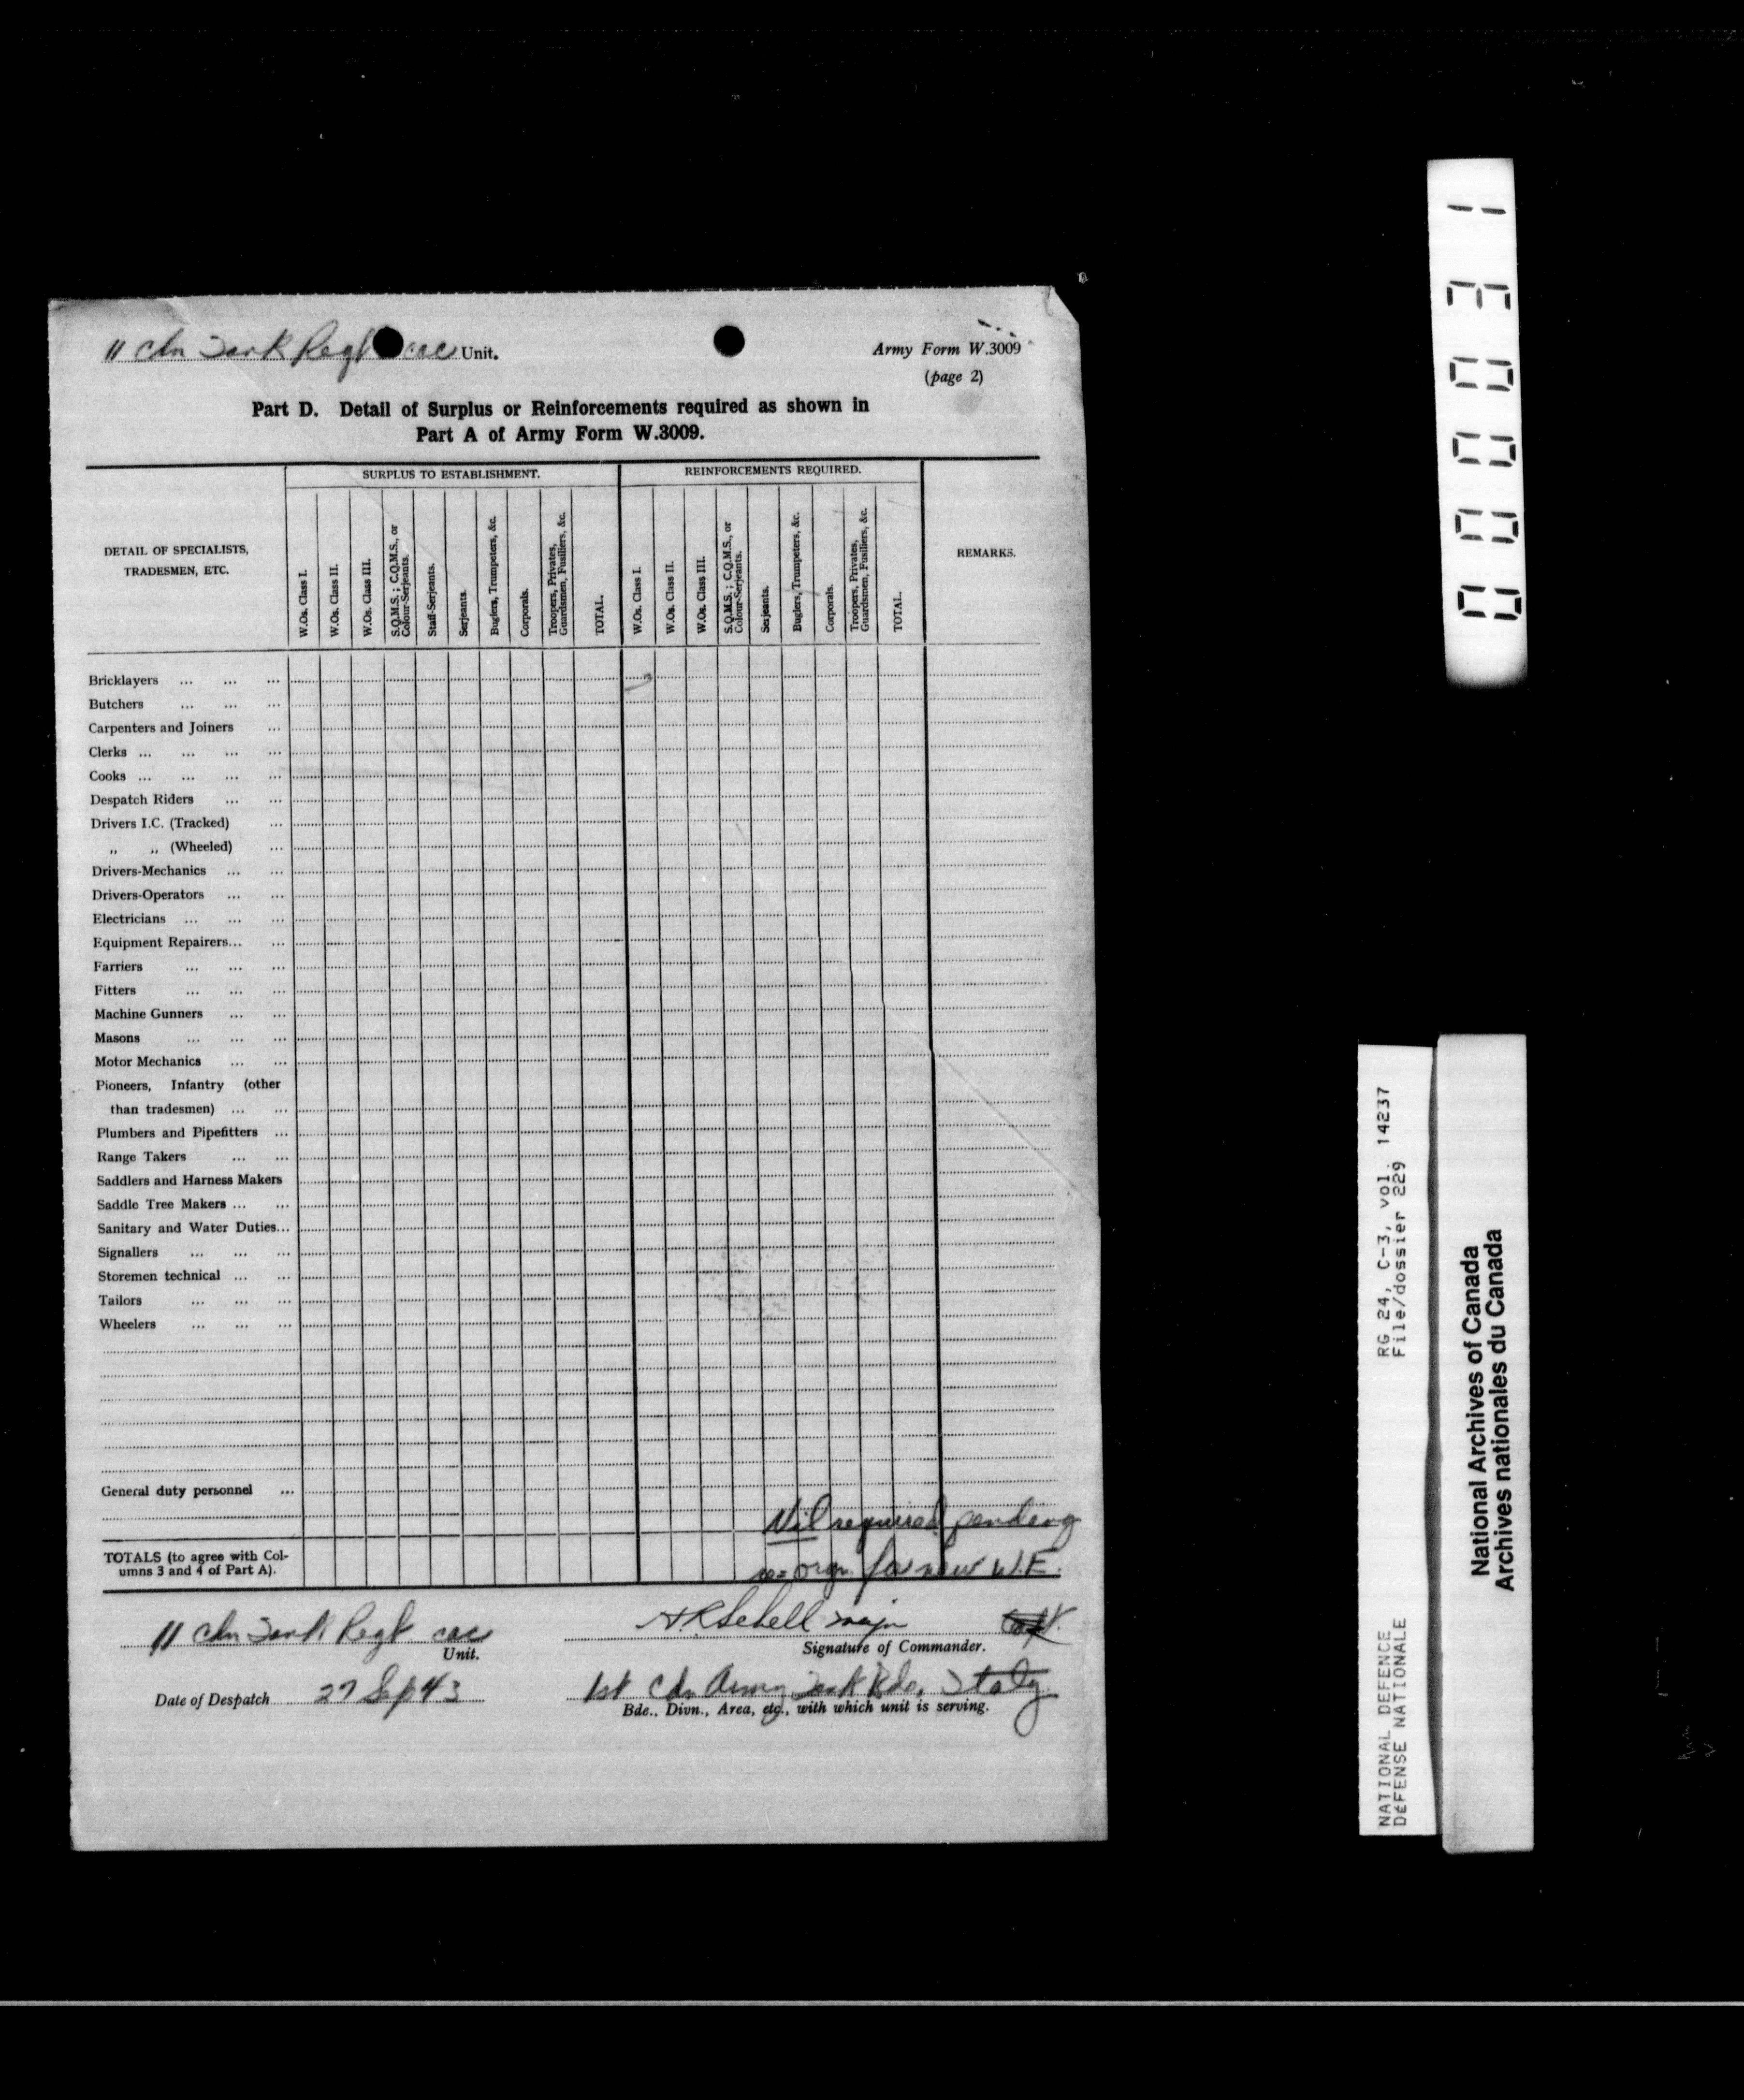 11 Cdn Tank Regt CAC Unit.
Army Form W.3009
(page 2)
Part D. Detail of Surplus or Reinforcements required as shown in
Part A of Army Form W.3009.
DETAIL OF SPECIALISTS,
TRADESMEN, ETC.
SURPLUS TO ESTABLISHMENT.
W.Os. Class I.
W.Os. Class II.
W.Os. Class III.
S.Q.M.S. ; C.Q.M.S., or
Colour-Serjeants.
Staff-Serjeants.
Serjeants.
Buglers, Trumpeters, &c.
Corporals.
Troopers, Privates,
Guardsmen, Fusiliers, &c.
TOTAL.
REINFORCEMENTS REQUIRED.
W.Os. Class I.
W.Os. Class II.
W.Os. Class III.
S.Q.M.S. ; C.Q.M.S., or
Colour-Serjeants.
Serjeants.
Buglers, Trumpeters, &c.
Corporals.
Troopers, Privates,
Guardsmen, Fusiliers, &c.
TOTAL.
REMARKS.
Bricklayers ... ... ...
Butchers ... ... ...
Carpenters and Joiners ...
Clerks ... ... ... ...
Cooks ... ... ... ...
Despatch Riders ... ...
Drivers I.C. (Tracked) ...
„ „ (Wheeled) ...
Drivers-Mechanics ... ...
Drivers-Operators ... ...
Electricians ... ... ...
Equipment Repairers... ...
Farriers ... ... ...
Fitters ... ... ...
Machine Gunners ... ...
Masons ... ... ...
Motor Mechanics ... ...
Pioneers, Infantry (other
than tradesmen) ... ...
Plumbers and Pipefitters ...
Range Takers ... ...
Saddlers and Harness Makers
Saddle Tree Makers ... ...
Sanitary and Water Duties...
Signallers ... ... ...
Storemen technical ... ...
Tailors ... ... ...
Wheelers ... ... ...
General duty personnel ...
Nil required pending
re-orgn. for new W.E.
TOTALS (to agree with Col-
umns 3 and 4 of Part A).
11 Cdn Tank Regt CAC
Unit.
Major
Signature of Commander.
Date of Despatch 27 Sep 43
1st Cdn Army Tank Bde, Italy
Bde., Divn., Area, etc., with which unit is serving.
000031
NATIONAL DEFENCE RG 24, C-3, vol. 14237
DÉFENSE NATIONALE File/dossier 229
National Archives of Canada
Archives nationales du Canada